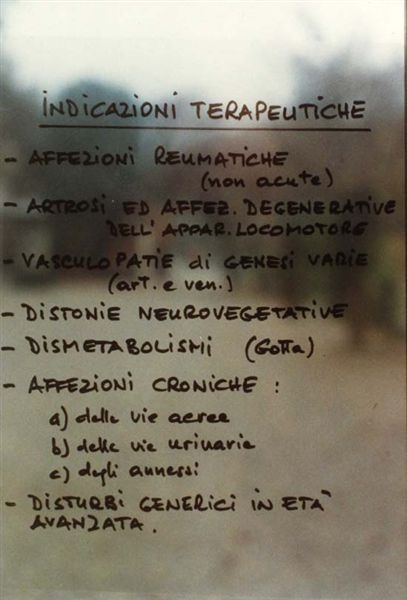 INDICAZIONI TERAPEUTICHE
- AFFEZIONI REUMATICHE
(non acute)
- ARTROSI ED AFFEZ. DEGENERATIVE
DELL'APPAR. LOCOMOTORE
- VASCULOPATIE di GENESI VARIE
(art. e ven.)
- DISTONIE NEUROVEGETATIVE
- DISMETABOLISMI (Gotta)
- AFFEZIONI CRONICHE :
a) delle vie aeree
b) delle vie urinarie
c) degli annessi
- DISTURBI GENERICI IN ETÀ
AVANZATA.